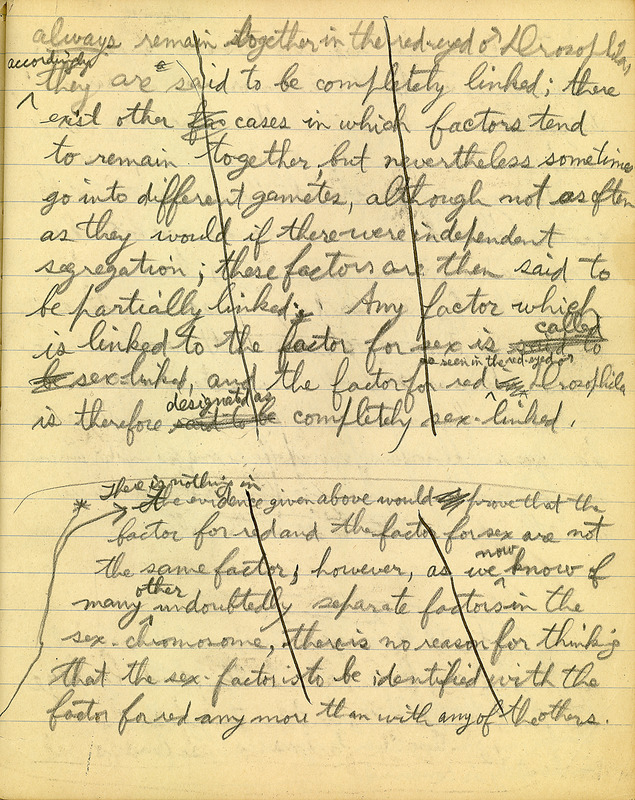 always remain together in the red-eyed ♂ Drosophila,
accordingly
they are said to be completely linked; there
exist other cases in which factors tend
to remain together, but nevertheless sometimes
go into different gametes, although not as often
as they would if there were independent
segregation; these factors are then said to
be partially linked. Any factor which
called
is linked to the factor for sex is said to
as seen in the red-eyed ♂
be sex-linked, and the factor for red Drosophila
designated as
is therefore said to be completely sex-linked.
There is nothing in
* the evidence given above would prove that the
factor for red and the factor for sex are not
the same factor; however, as we now know of
many other undoubtedly separate factors in the
sex-chromosome, there is no reason for thinking
that the sex-factor is to be identified with the
factor for red any more than with any of the others.